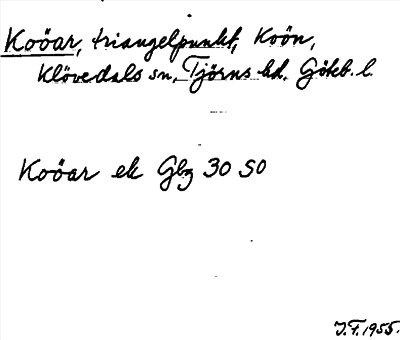 Koöar, triangelpunkt, Koön,
Klövedals sn, Tjörns hd. Göteb. l.
Koöar ek Gbg 30 SO
J.F. 1955.